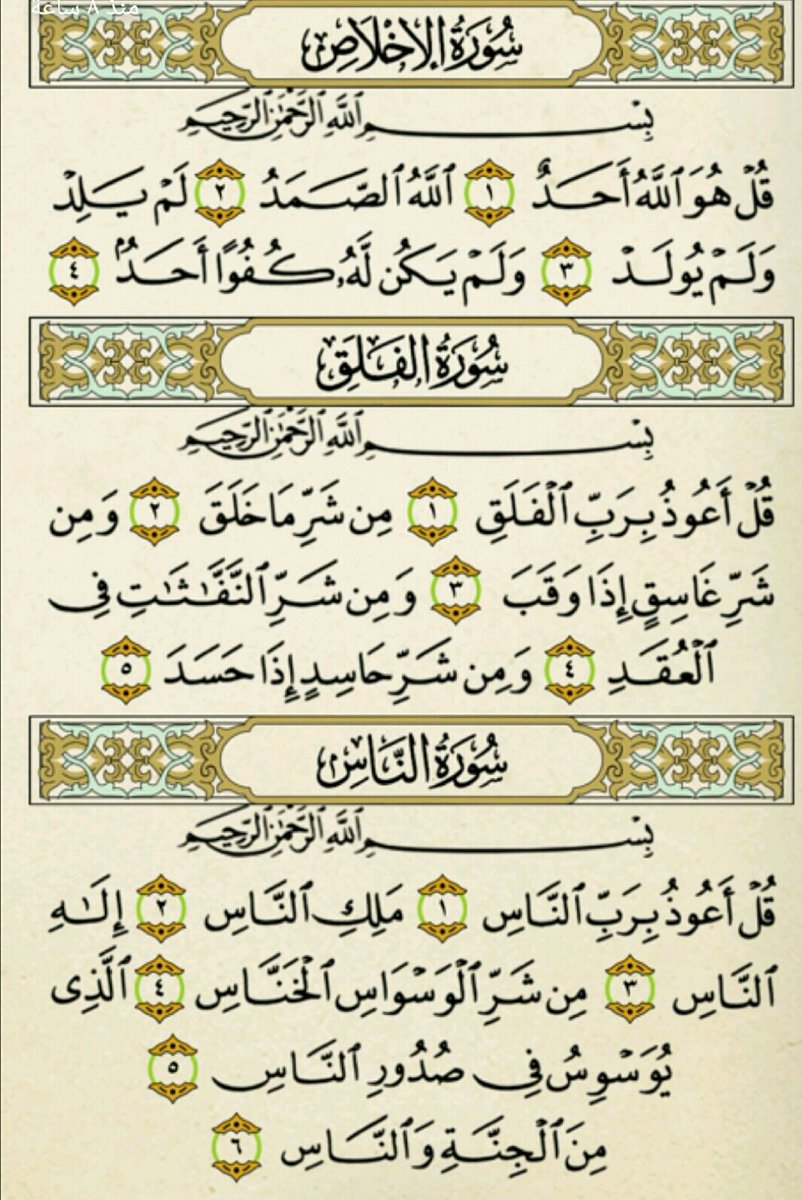 منذ ٨ ساعة
سُورَةُ الإِخْلَاصِ
بِسْمِ اللَّهِ الرَّحْمَٰنِ الرَّحِيمِ
قُلْ هُوَ ٱللَّهُ أَحَدٌ ١ ٱللَّهُ ٱلصَّمَدُ ٢ لَمْ يَلِدْ
وَلَمْ يُولَدْ ٣ وَلَمْ يَكُن لَّهُۥ كُفُوًا أَحَدٌۢ ٤
سُورَةُ الفَلَقِ
بِسْمِ اللَّهِ الرَّحْمَٰنِ الرَّحِيمِ
قُلْ أَعُوذُ بِرَبِّ ٱلْفَلَقِ ١ مِن شَرِّ مَا خَلَقَ ٢ وَمِن
شَرِّ غَاسِقٍ إِذَا وَقَبَ ٣ وَمِن شَرِّ ٱلنَّفَّٰثَٰتِ فِى
ٱلْعُقَدِ ٤ وَمِن شَرِّ حَاسِدٍ إِذَا حَسَدَ ٥
سُورَةُ النَّاسِ
بِسْمِ اللَّهِ الرَّحْمَٰنِ الرَّحِيمِ
قُلْ أَعُوذُ بِرَبِّ ٱلنَّاسِ ١ مَلِكِ ٱلنَّاسِ ٢ إِلَٰهِ
ٱلنَّاسِ ٣ مِن شَرِّ ٱلْوَسْوَاسِ ٱلْخَنَّاسِ ٤ ٱلَّذِى
يُوَسْوِسُ فِى صُدُورِ ٱلنَّاسِ ٥
مِنَ ٱلْجِنَّةِ وَٱلنَّاسِ ٦